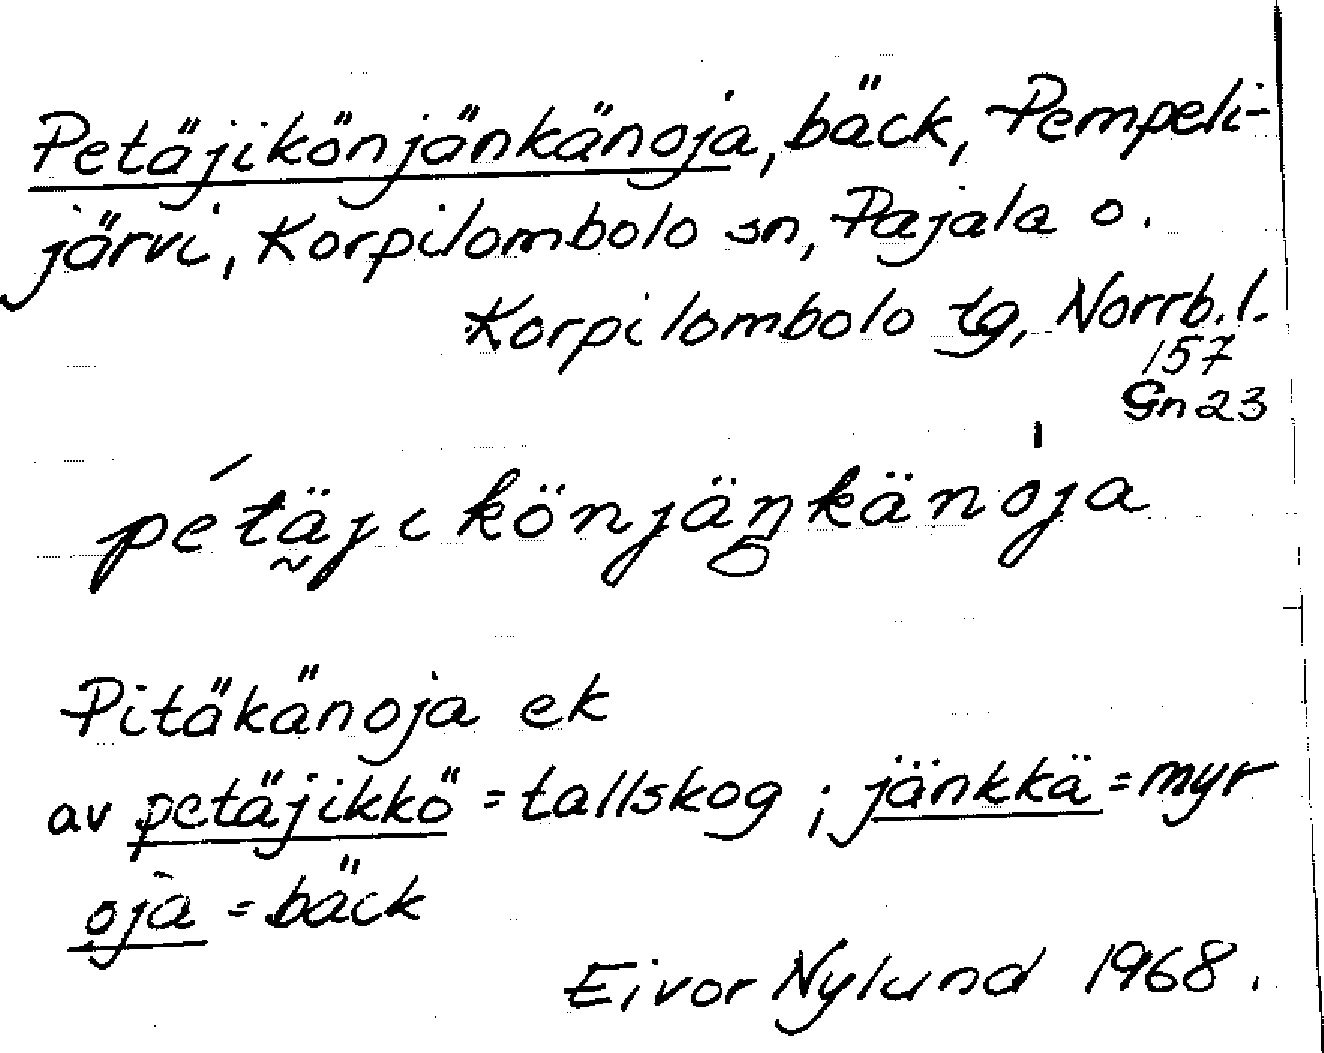 Petäjikönjänkänoja, bäck, Pempeli-
järvi, Korpilombolo sn, Pajala o.
Korpilombolo tg, Norrb.l.
157
Gn 23
petäji könjäŋkänoja
Pitäkänoja ek
av petäjikkö = tallskog ; jänkkä = myr
oja = bäck
Eivor Nylund 1968.